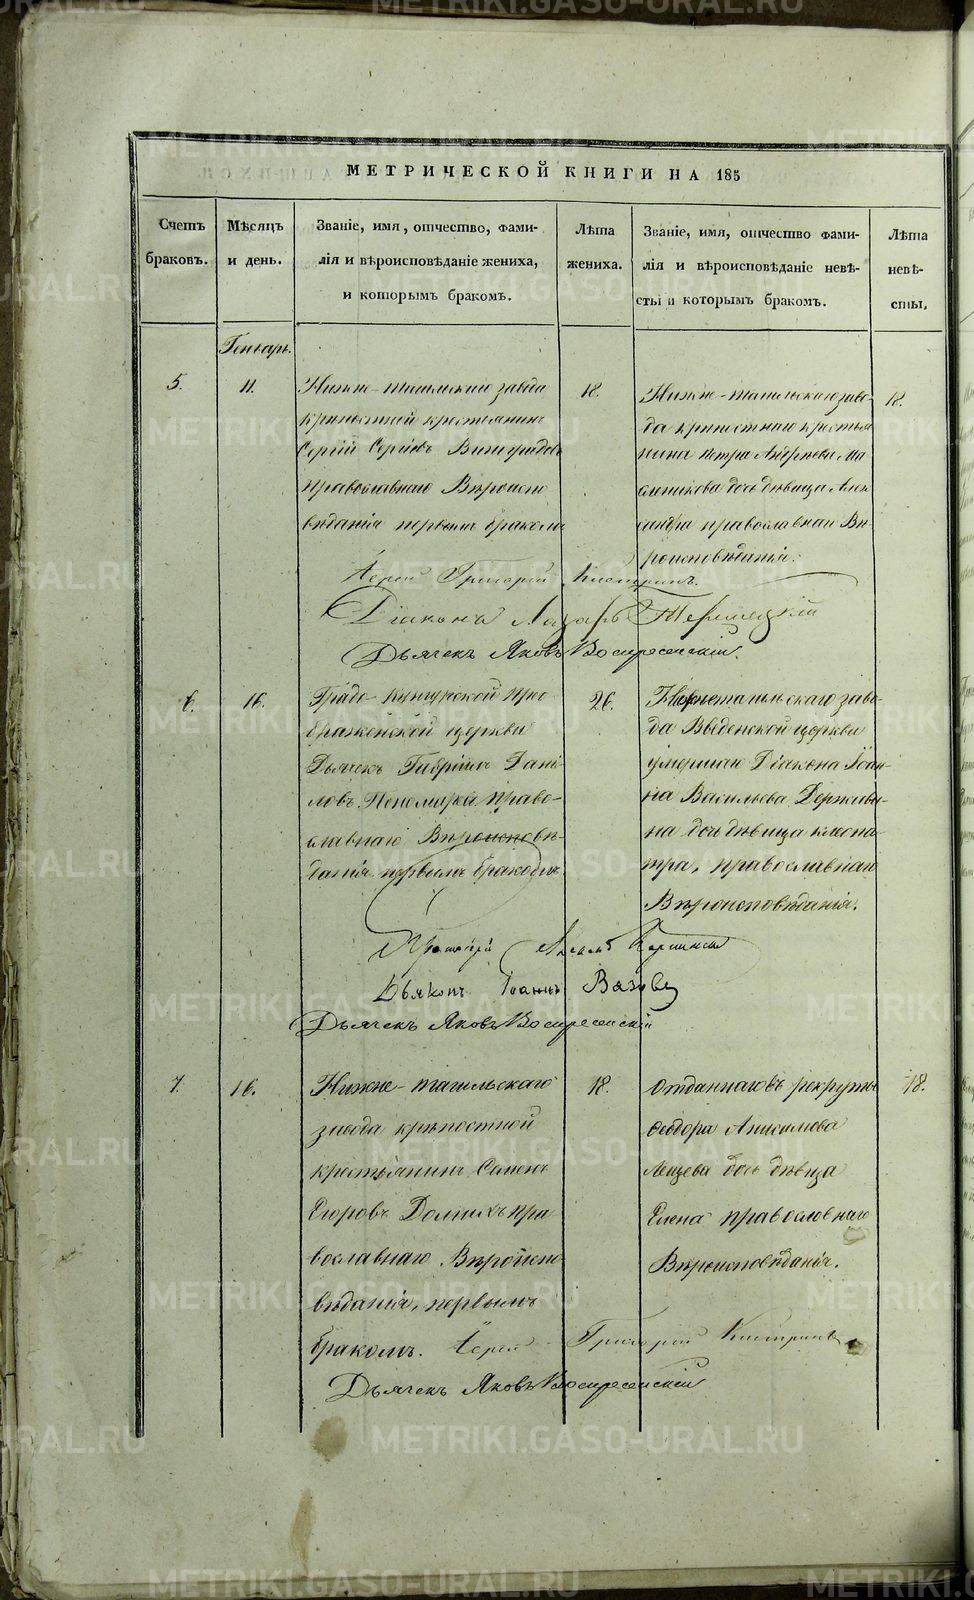 МЕТРИЧЕСКОЙ КНИГИ НА 185
Счетъ браковъ.
Мѣсяцъ и день.
Званіе, имя, отчество, фами-
лія и вѣроисповѣданіе жениха,
и которымъ бракомъ.
Лѣта жениха.
Званіе, имя, отчество фами-
лія и вѣроисповѣданіе невѣ-
сты и которымъ бракомъ.
Лѣта невѣ-
сты.
Генварь.
5.
11.
Нижне-тагильскаго завода
крѣпостной крестьянинъ
Сергій Сергіевъ Виноградовъ
православнаго Вѣроиспо
вѣданія первымъ бракомъ
18.
Нижне-тагильскаго заво-
да крѣпостнаго крестья
нина Петра Андреева Ма
сленикова дочь дѣвица Алек
сандра православнаго Вѣ-
роисповѣданія.
18.
Іерей Григорій
Діаконъ Лазарь
Дьячекъ Яковъ Воскресенскій.
6.
16.
Градо-Кунгурской Прео
браженской церкви
Дьячекъ Гавріилъ Дани-
ловъ Пономаревъ право-
славнаго Вѣроисповѣ-
данія первымъ бракомъ
26.
Нижнетагильскаго заво-
да Введенской церкви
умершаго Діакона Іоан-
на Васильева Державина
дочь дѣвица Клеопа-
тра, православнаго
Вѣроисповѣданія.
Діаконъ Іоаннъ
Дьячекъ Яковъ Воскресенскій
7.
16.
Нижне-тагильскаго
завода крѣпостной
крестьянинъ Семенъ
Егоровъ пра
вославнаго Вѣроиспо
вѣданія, первымъ
бракомъ.
18.
Отданнаго въ рекруты
Ѳедора Анисимова
дочь дѣвица
Елена православнаго
Вѣроисповѣданія.
18.
Іерей Григорій
Дьячекъ Яковъ Воскресенскій
METRIKI.GASO-URAL.RU